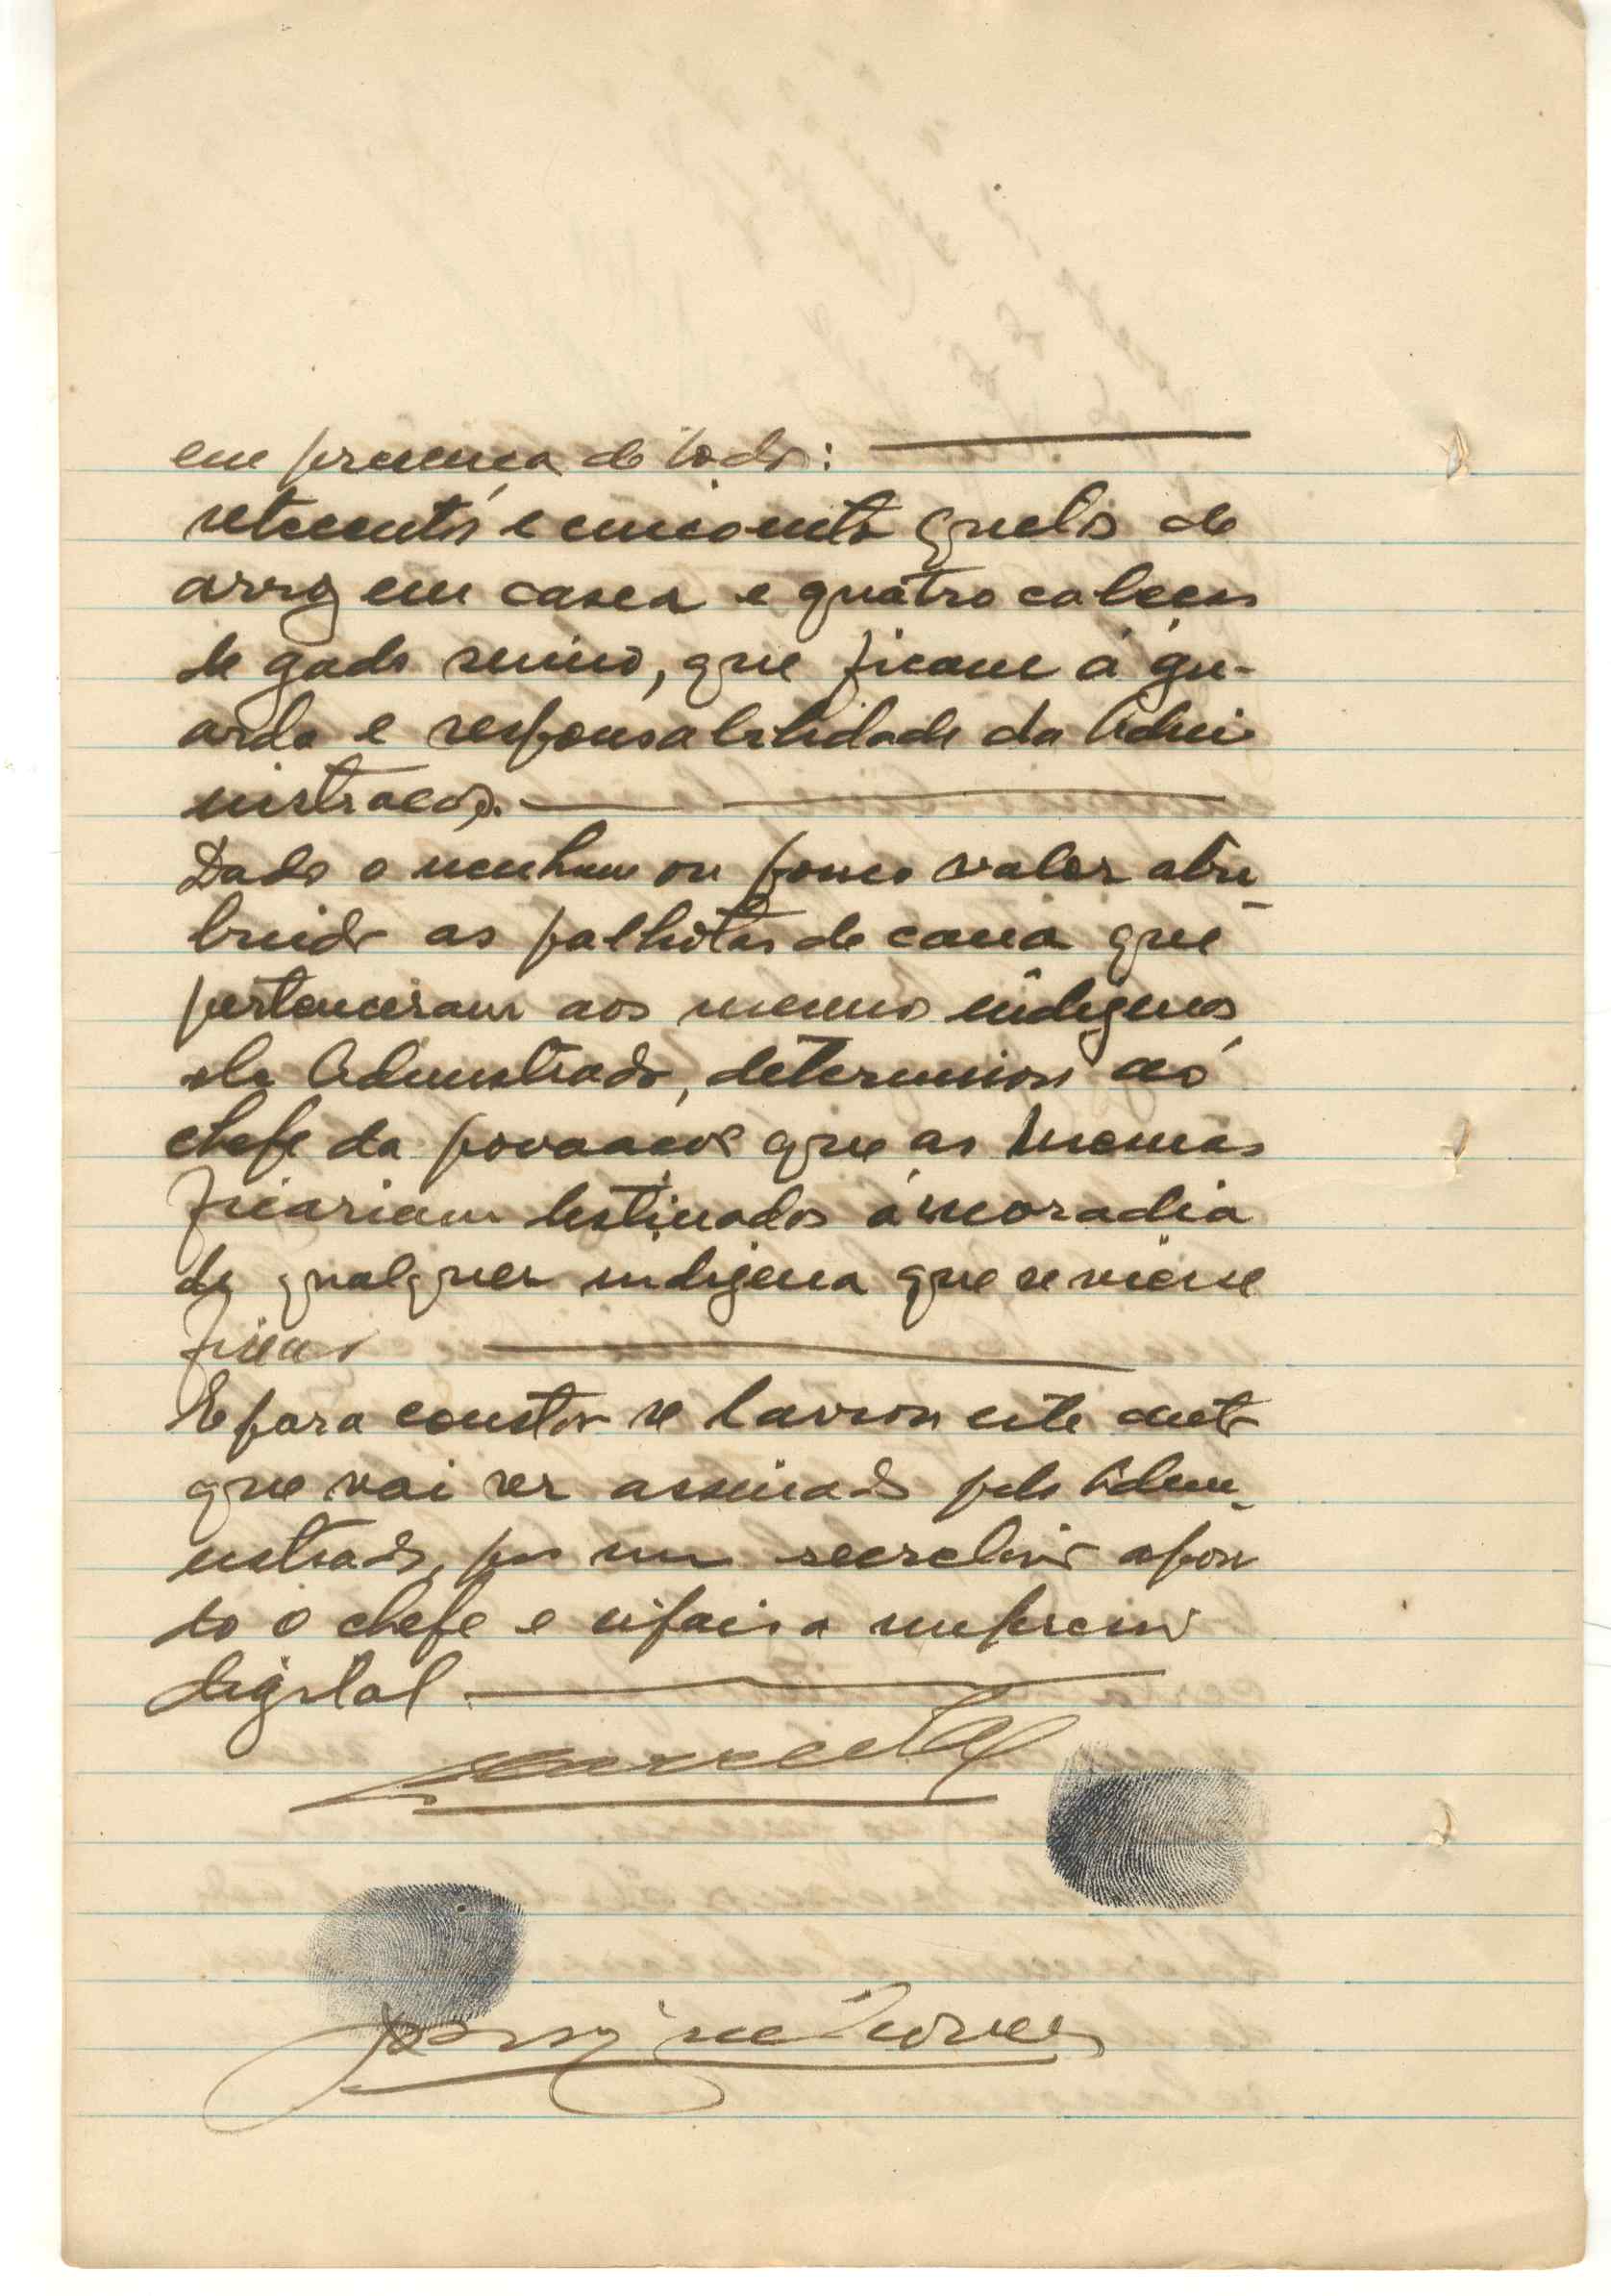 em presença de todos:
setecentos e cincoenta quilos de
arroz em casca e quatro cabeças
de gado suino, que ficam á gu-
arda e responsabilidade da Admi
nistração.
Dado o nenhum ou pouco valor atri-
buido as palhotas de cana que
pertenceram aos mesmos indigenas
ele Administrador, determinou ao
chefe da povoação que as mesmas
ficariam destinados á moradia
de qualquer indigena que se viesse
ficar
E para constar se lavrou este auto
que vai ser assinado pelo Admi-
nistrador, por mim secretário apon
do o chefe e cipais a impressão
digital